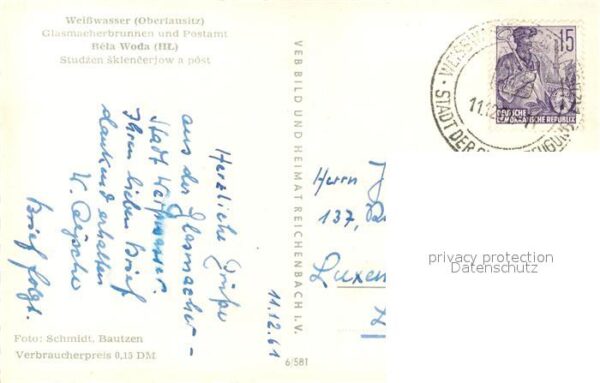 Weißwasser (Oberlausitz)
Glasmacherbrunnen und Postamt
Běla Woda (HL)
Studźeń šklenčerjow a póst
Herzliche Grüße
aus der Glasmacher-
Stadt Weißwasser.
Ihren lieben Brief
dankend erhalten
W.
Brief folgt.
11.12.61
Foto: Schmidt, Bautzen
Verbraucherpreis 0,15 DM
VEB BILD UND HEIMAT REICHENBACH I. V.
6/581
15
DEUTSCHE
DEMOKRATISCHE REPUBLIK
11.12
STADT DER
Herrn J
137,
Luxem
privacy protection
Datenschutz